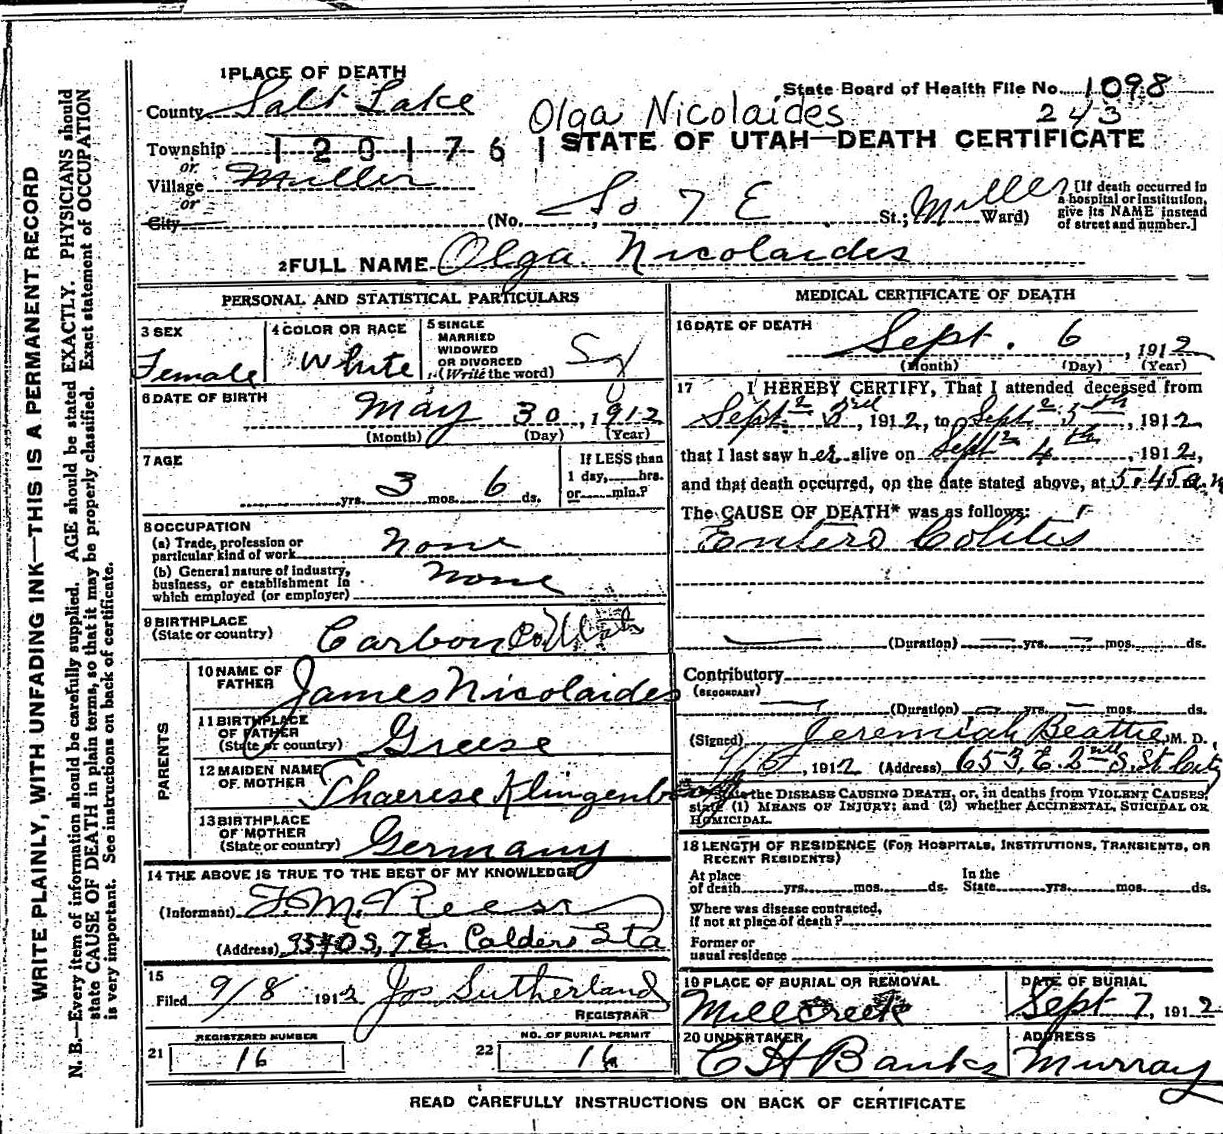 1 PLACE OF DEATH
County Salt Lake
State Board of Health File No. 1098
Olga Nicolaides 243
Township 120176 1
STATE OF UTAH—DEATH CERTIFICATE
or
Village Miller
or
City (No. So 7 E St.; Miller Ward)
[If death occurred in a hospital or institution, give its NAME instead of street and number.]
2 FULL NAME Olga Nicolaides
PERSONAL AND STATISTICAL PARTICULARS
3 SEX
Female
4 COLOR OR RACE
White
5 SINGLE
MARRIED
WIDOWED
OR DIVORCED
(Write the word)
Sg
6 DATE OF BIRTH
May 30, 1912
(Month) (Day) (Year)
7 AGE
yrs. 3 mos. 6 ds.
If LESS than
1 day, hrs.
or min.?
8 OCCUPATION
(a) Trade, profession or
particular kind of work None
(b) General nature of industry,
business, or establishment in
which employed (or employer) None
9 BIRTHPLACE
(State or country) Carbon Co Utah
PARENTS
10 NAME OF
FATHER James Nicolaides
11 BIRTHPLACE
OF FATHER
(State or country) Greese
12 MAIDEN NAME
OF MOTHER Thaerese Klingenberg
13 BIRTHPLACE
OF MOTHER
(State or country) Germany
14 THE ABOVE IS TRUE TO THE BEST OF MY KNOWLEDGE
(Informant) F. M. Reess
(Address) S, 7 E. Calders Sta
15
Filed 9/8 1912 Jos Sutherland
REGISTRAR
REGISTERED NUMBER
21 16
NO. OF BURIAL PERMIT
22 16
MEDICAL CERTIFICATE OF DEATH
16 DATE OF DEATH
Sept. 6, 1912
(Month) (Day) (Year)
17 I HEREBY CERTIFY, That I attended deceased from
Sept. 3rd, 1912, to Sept 5th, 1912
that I last saw her alive on Sept 4th, 1912,
and that death occurred, on the date stated above, at 5.45 a.m
The CAUSE OF DEATH* was as follows:
Entero Colites
(Duration) yrs. mos. ds.
Contributory
(SECONDARY)
(Duration) yrs. mos. ds.
(Signed) Jeremiah Beattie, M. D.
, 1912 (Address) 653, E. 2nd S. St. City
the DISEASE CAUSING DEATH, or, in deaths from VIOLENT CAUSES,
state (1) MEANS OF INJURY; and (2) whether ACCIDENTAL, SUICIDAL OR
HOMICIDAL.
18 LENGTH OF RESIDENCE (FOR HOSPITALS, INSTITUTIONS, TRANSIENTS, OR
RECENT RESIDENTS)
At place
of death yrs. mos. ds.
In the
State yrs. mos. ds.
Where was disease contracted,
if not at place of death?
Former or
usual residence
19 PLACE OF BURIAL OR REMOVAL
Mill Creek
DATE OF BURIAL
Sept 7, 1912
20 UNDERTAKER
C H Banks
ADDRESS
Murray
READ CAREFULLY INSTRUCTIONS ON BACK OF CERTIFICATE
WRITE PLAINLY, WITH UNFADING INK—THIS IS A PERMANENT RECORD
N. B.—Every item of information should be carefully supplied. AGE should be stated EXACTLY. PHYSICIANS should
state CAUSE OF DEATH in plain terms, so that it may be properly classified. Exact statement of OCCUPATION
is very important. See instructions on back of certificate.